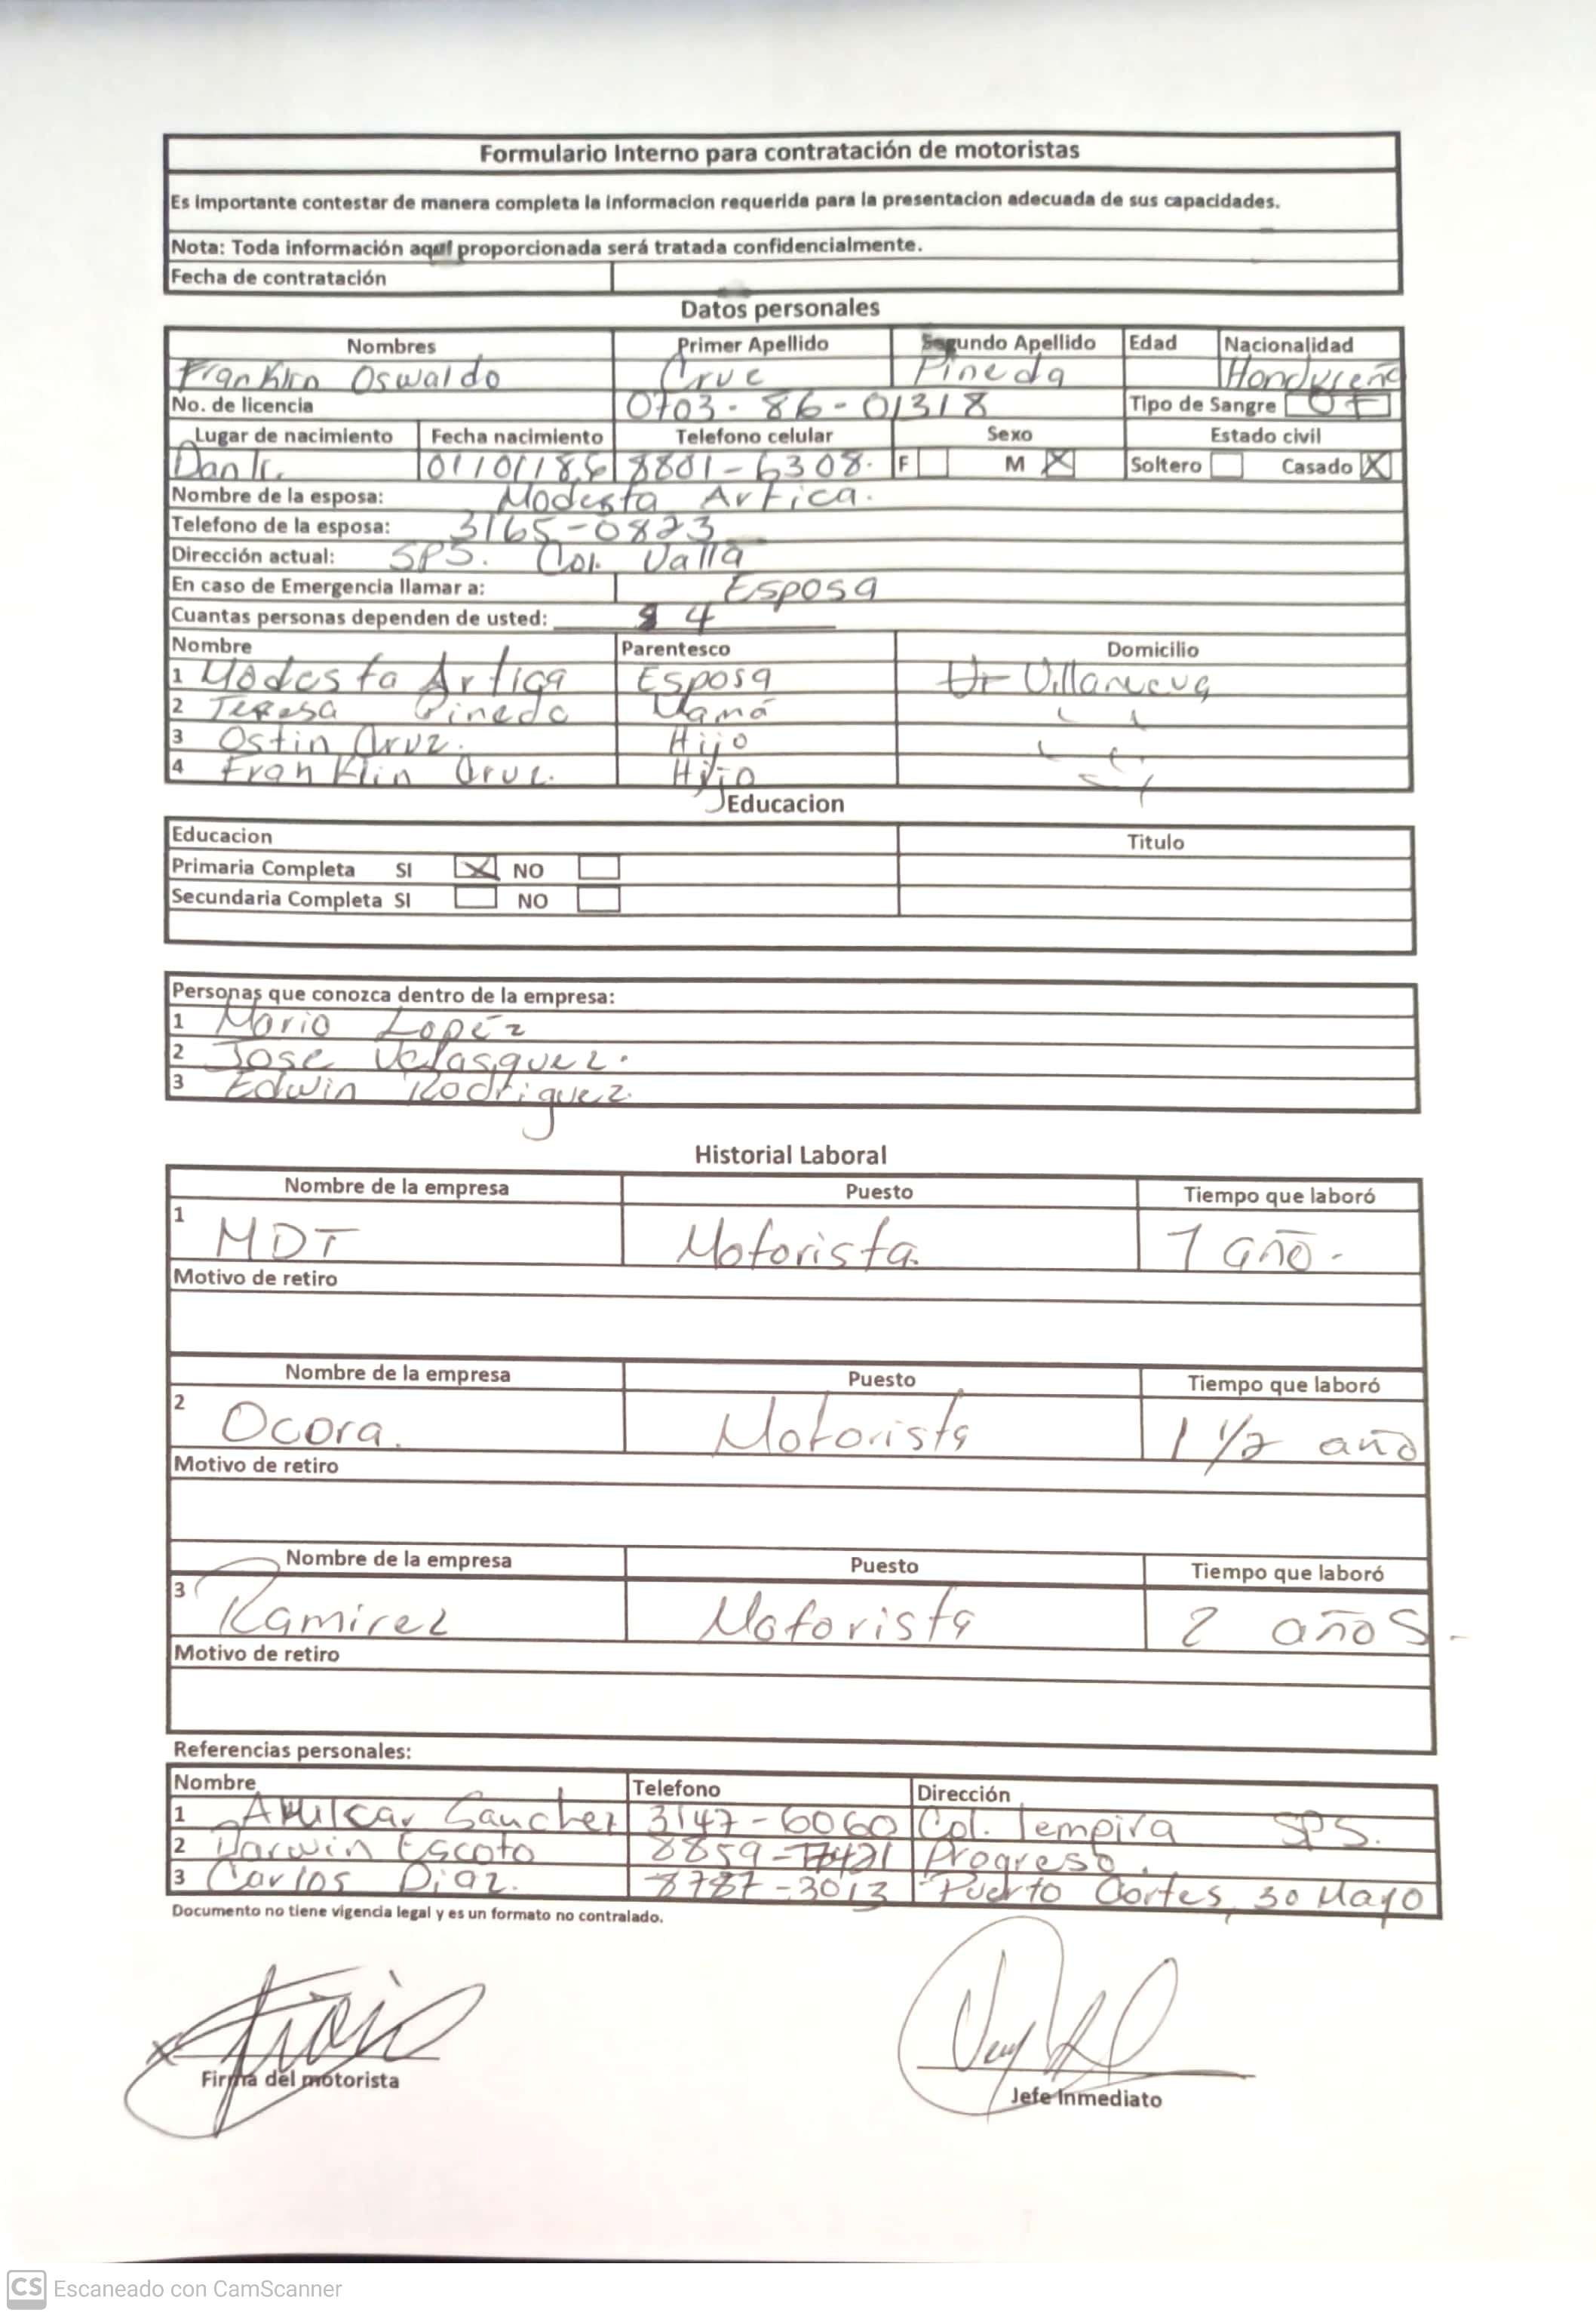 Formulario Interno para contratación de motoristas
Es importante contestar de manera completa la informacion requerida para la presentacion adecuada de sus capacidades.
Nota: Toda información aquí proporcionada será tratada confidencialmente.
Fecha de contratación
Datos personales
Nombres Primer Apellido Segundo Apellido Edad Nacionalidad
Franklin Oswaldo Cruz Pineda Hondureña
No. de licencia 0703-86-01318 Tipo de Sangre O+
Lugar de nacimiento Fecha nacimiento Telefono celular Sexo Estado civil
Danli. 01/01/86 8801-6308. F M X Soltero Casado X
Nombre de la esposa: Modesta Artica.
Telefono de la esposa: 3165-0823
Dirección actual: SPS. Col. Valla
En caso de Emergencia llamar a: Esposa
Cuantas personas dependen de usted: 4
Nombre Parentesco Domicilio
1 Modesta Artiga Esposa Villanueva
2 Teresa Pineda Mamá
3 Ostin Cruz. Hijo
4 Franklin Cruz. Hijo
Educacion
Educacion Titulo
Primaria Completa SI X NO
Secundaria Completa SI NO
Personas que conozca dentro de la empresa:
1 Mario Lopéz
2 Jose Velasquez.
3 Edwin Rodriguez.
Historial Laboral
Nombre de la empresa Puesto Tiempo que laboró
1 MDT Motorista 1 año.
Motivo de retiro
Nombre de la empresa Puesto Tiempo que laboró
2 Ocora. Motorista 1 1/2 año
Motivo de retiro
Nombre de la empresa Puesto Tiempo que laboró
3 Ramirez Motorista 2 años.-
Motivo de retiro
Referencias personales:
Nombre Telefono Dirección
1 Amilcar Sanchez 3147-6060 Col. Lempira SPS.
2 Darwin Escoto Progreso.
3 Carlos Diaz. 8787-3013 Puerto Cortes, 30 Mayo
Documento no tiene vigencia legal y es un formato no contralado.
Firma del motorista Jefe Inmediato
CS Escaneado con CamScanner